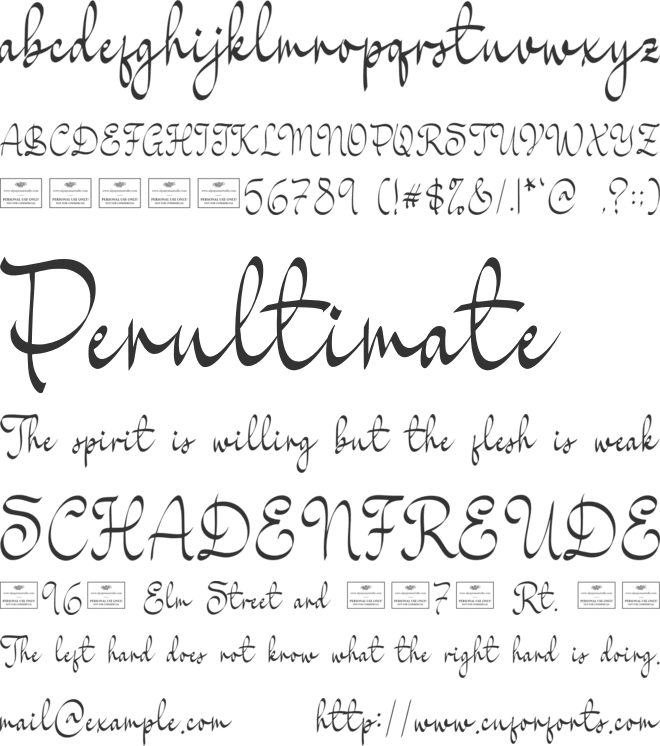 abcdefghijklmnopqrstuvwxyz
ABCDEFGHIJKLMNOPQRSTUVWXYZ
PERSONAL USE ONLY! PERSONAL USE ONLY! PERSONAL USE ONLY! PERSONAL USE ONLY! PERSONAL USE ONLY! 56789 (!#$%&/.|*`@ ,?:;)
Penultimate
The spirit is willing but the flesh is weak
SCHADENFREUDE
PERSONAL USE ONLY! 96 PERSONAL USE ONLY! Elm Street and PERSONAL USE ONLY! PERSONAL USE ONLY! 7 PERSONAL USE ONLY! Rt. PERSONAL USE ONLY! PERSONAL USE ONLY!
The left hand does not know what the right hand is doing.
mail@example.com http://www.cufonfonts.com